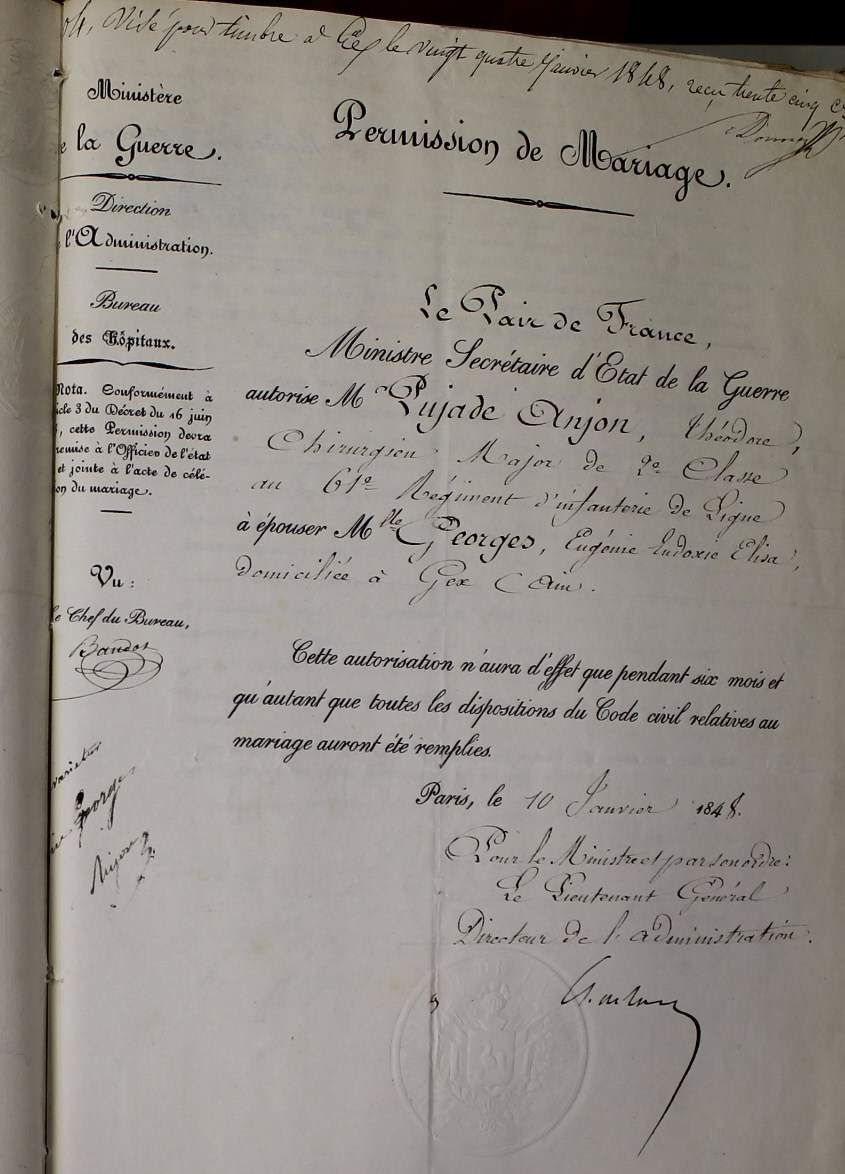 Visé pour timbre à Gex le vingt quatre janvier 1848, reçu trente cinq
Ministère
e la Guerre.
Direction
l'Administration.
Bureau
des Hôpitaux.
Nota. Conformément à
icle 3 du Décret du 16 juin
, cette Permission devra
remise à l'Officier de l'état
et jointe à l'acte de célé-
on du mariage.
Vu :
le Chef du Bureau,
varietur
Georges
Anjon
Permission de Mariage.
Le Pair de France,
Ministre Secrétaire d'Etat de la Guerre
autorise M Pujade Anjon, Théodore,
Chirurgien Major de 2e Classe
au 61e Régiment d'infanterie de Ligne
à épouser Mlle Georges, Eugénie Eudoxie Elisa,
domiciliée à Gex (Ain.
Cette autorisation n'aura d'effet que pendant six mois et
qu'autant que toutes les dispositions du Code civil relatives au
mariage auront été remplies.
Paris, le 10 Janvier 1848.
Pour le Ministre et par son ordre :
Le Lieutenant Général
Directeur de l'administration.